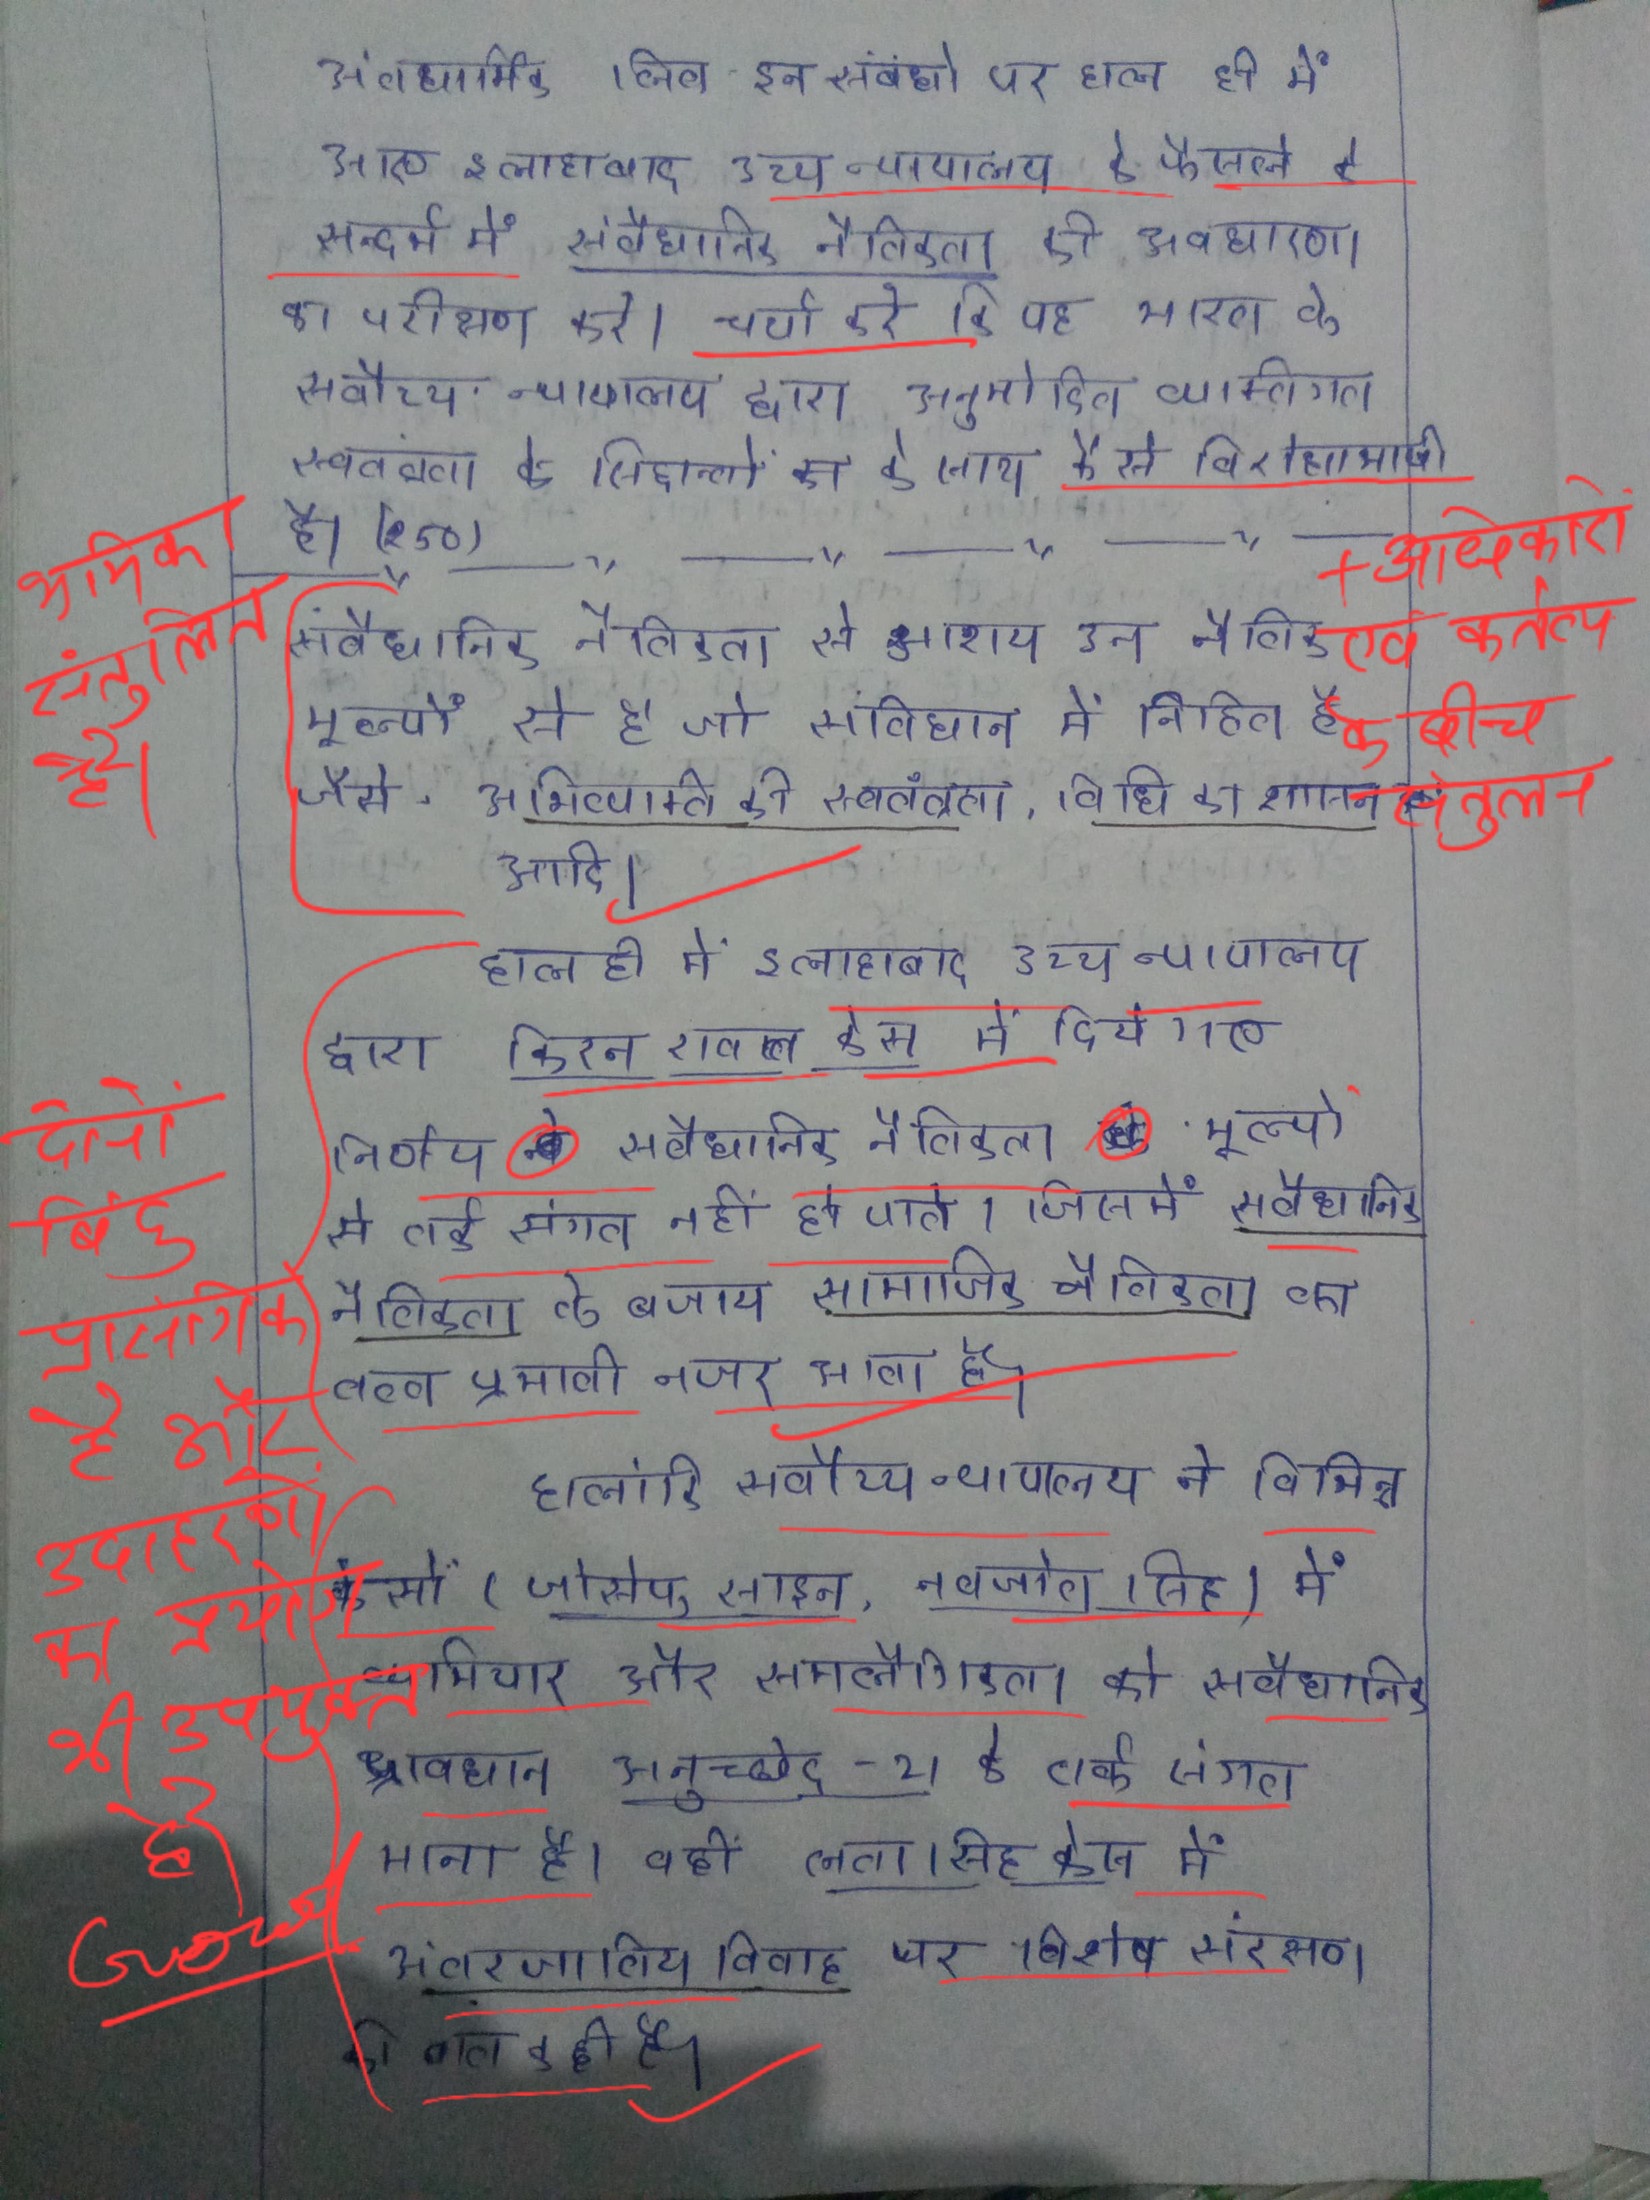 अंतधार्मिक लिव-इन संबंधो पर हाल ही में
आए इलाहाबाद उच्च न्यायालय के फैसले के
सन्दर्भ में संवैधानिक नैतिकता की अवधारणा
का परीक्षण करे। चर्चा करे कि यह भारत के
सर्वोच्य न्यायालय द्वारा अनुमोदित व्यक्तिगत
स्वतंत्रता के सिद्दान्तों के साथ कैसे विरोधाभाषी
है। (250)
भूमिका
संतुलित
है।
+ अधिकारों
एवं कर्तव्य
के बीच
संतुलन
संवैधानिक नैतिकता से आशय उन नैतिक
मूल्यों से है जो संविधान में निहित है
जैसे - अभिव्यक्ति की स्वतंत्रता, विधि का शासन
आदि।
हाल ही में इलाहाबाद उच्च न्यायालय
द्वारा किरन रावत केस में दिये गए
निर्णय सवैधानिक नैतिकता के मूल्यों
से तर्क संगत नहीं हो पाते। जिसमें सवैधानिक
नैतिकता के बजाय सामाजिक नैतिकता का
तत्व प्रभावी नजर आता है।
दोनों
बिंदु
प्रासंगिक
है और
उदाहरणों
का प्रयोग
भी उपयुक्त
है
Good
हालांकि सर्वोच्य न्यायालय ने विभिन्न
केसों (जोसेफ साइन, नवजोत सिंह) में
व्यभिचार और समलैंगिकता को सवैधानिक
प्रावधान अनुच्छेद-21 के तर्क संगत
माना है। वहीं लता सिंह केस में
अंतरजातिय विवाह पर विशेष संरक्षण
की बात कही है।